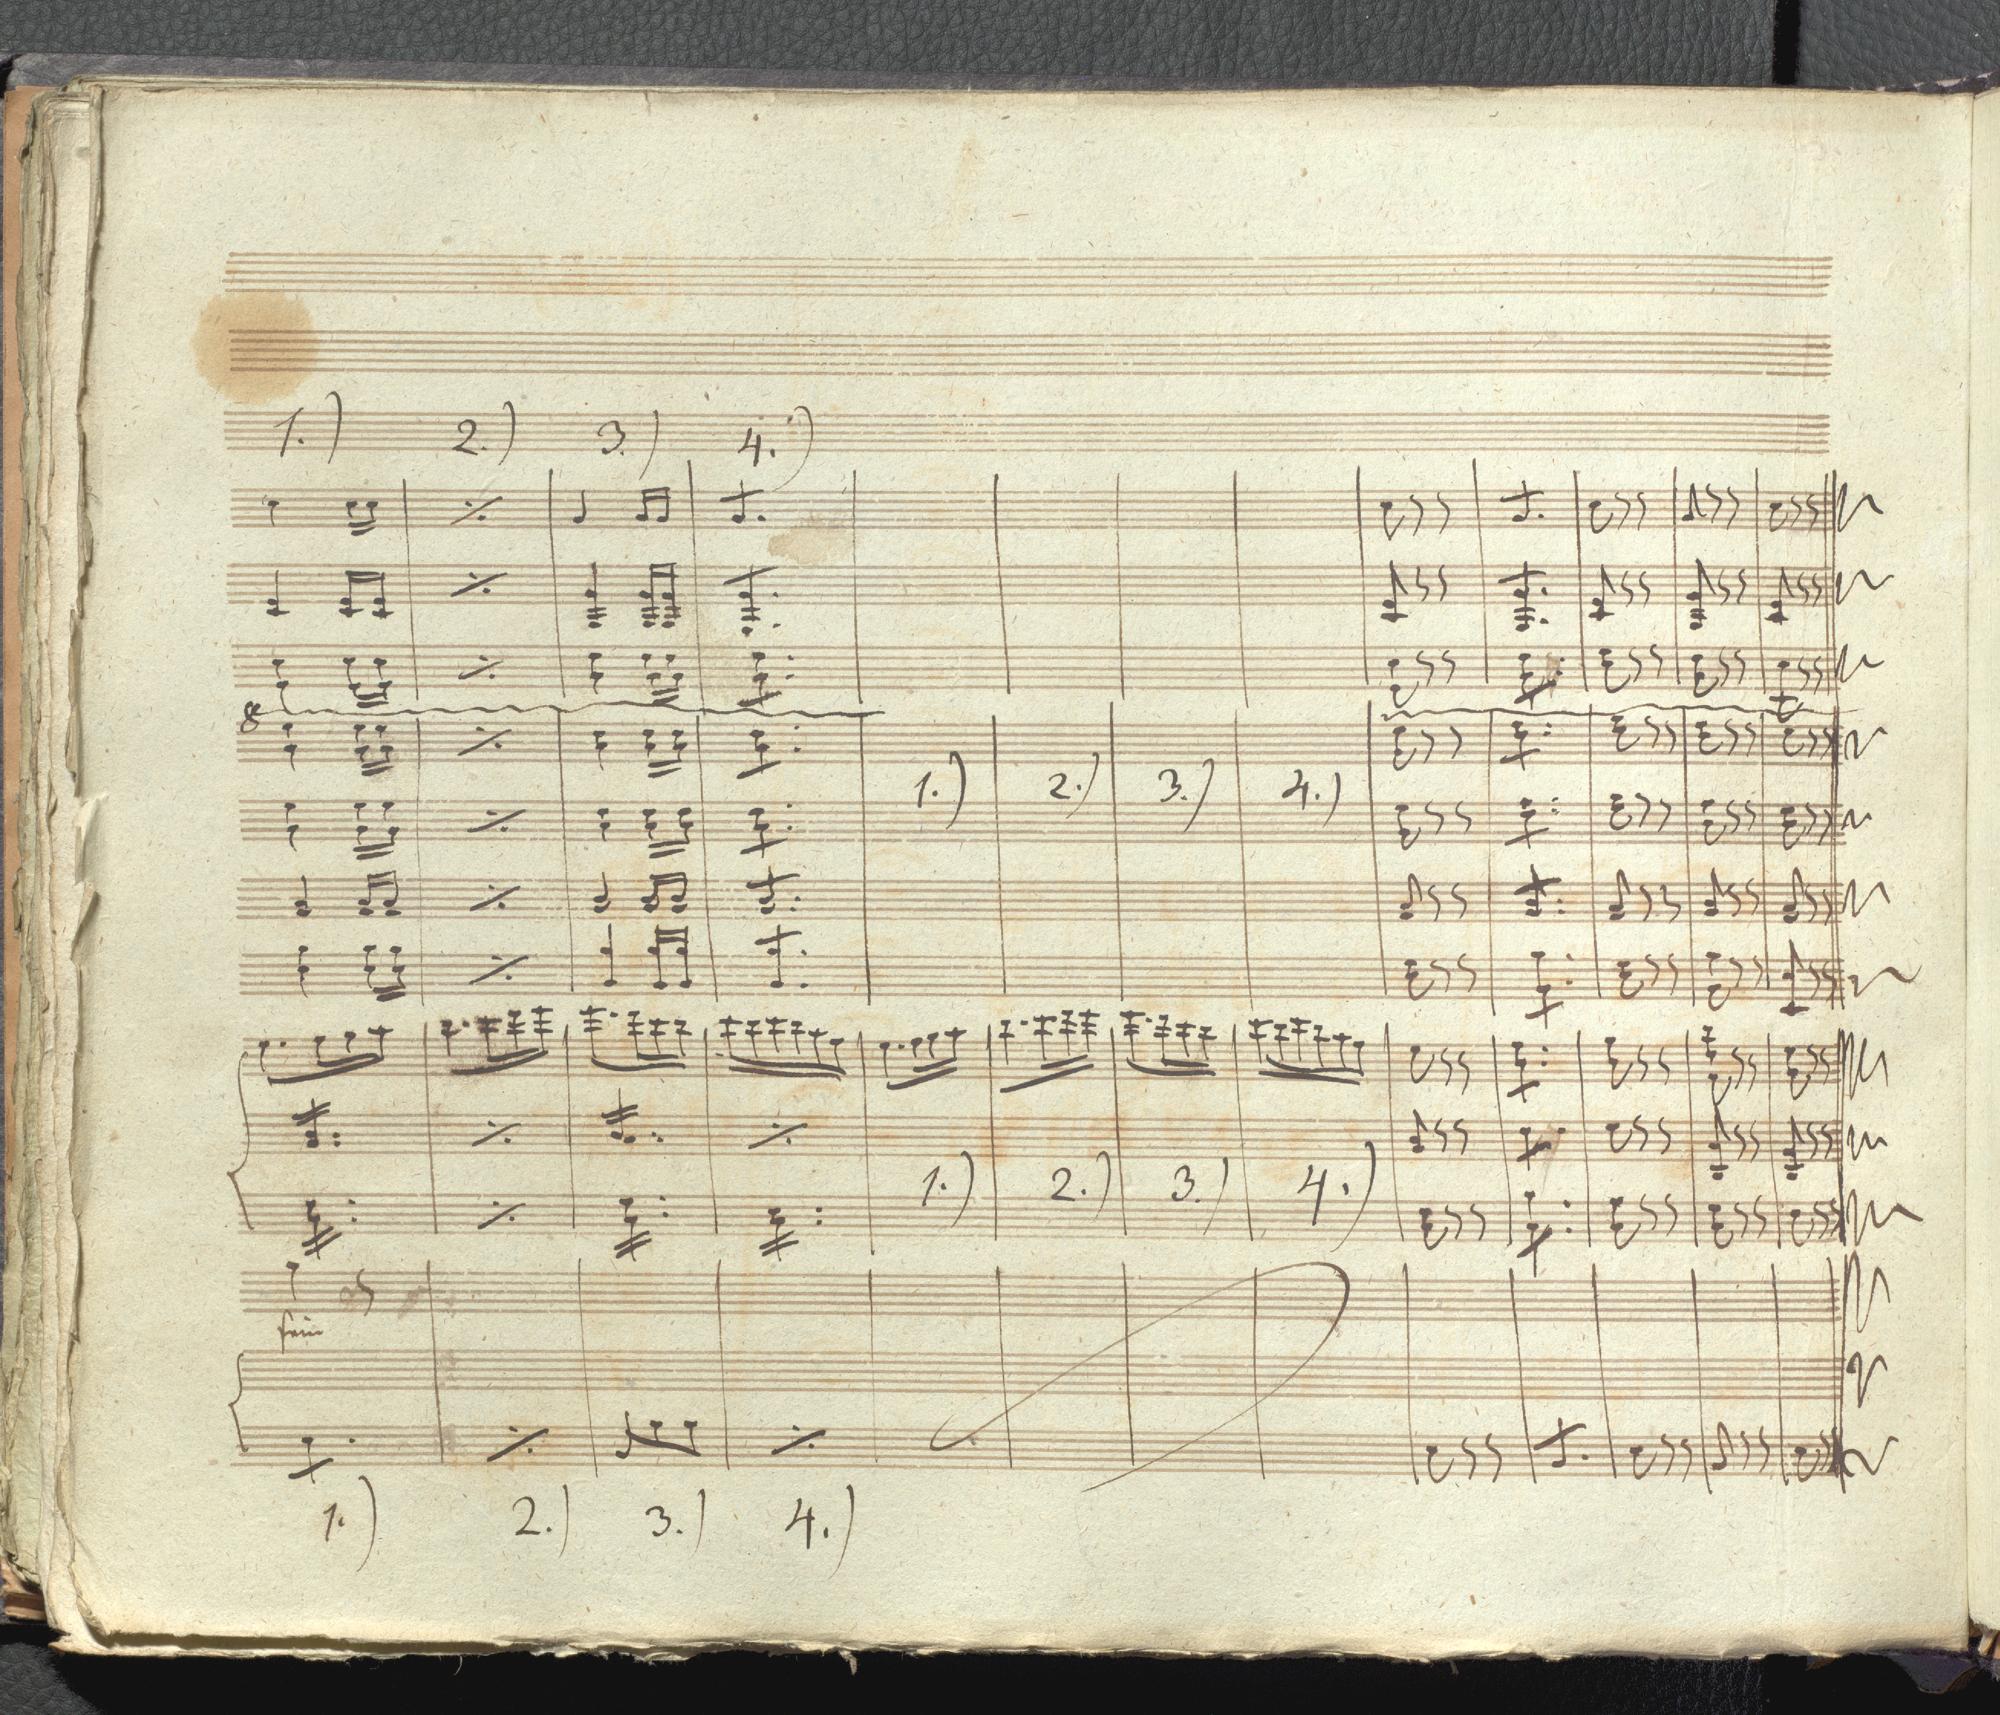 1.) 2.) 3.) 4.)
8
1.) 2.) 3.) 4.)
1.) 2.) 3.) 4.)
1.) 2.) 3.) 4.)